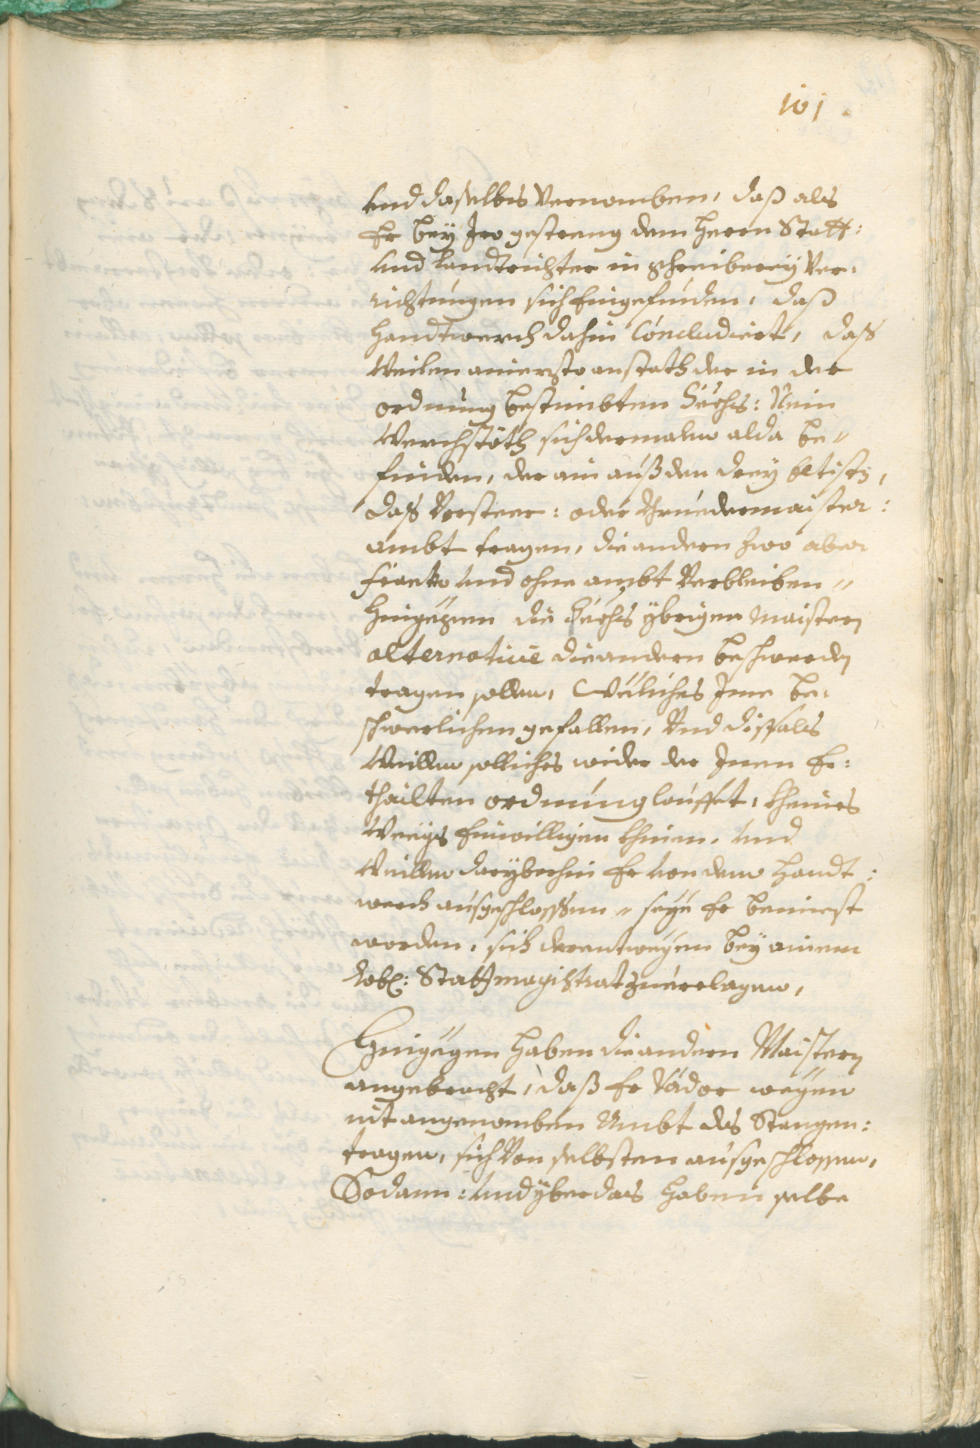 101
und daselbs vernomben, daß als
Er bey Iro gestreng dem Herrn Statt:
und Landtrichter in schreiberey ver„
richtungen sich Eingefunden, daß
Handtwerch dahin Concludiert, daß
Weilen anierzto anstath der in der
ordnung bestimbten Sechs: Nein
Werchstöth sich dermalen alda be„
finden, der ain auß den drey
das Vorsteer: oder Bruedermaister:
ambt tragen, die andern zwo aber
frey und ohne ambt Verbleiben„
Hingegen die Sechs ybrigen Maistern
alternative die andern beschwerden
tragen sollen, Weliches Ime be„
schwerlichen gefallen, Und dissfals
Weillen solliches wider der Inen Er:
thailten ordnung lauffet, kheines
Weegs Einwilligen khinen, Und
Weillen daryberhin Er von dem Handt:
werch ausgeschlossen„ seye Er bemiest
worden, sich derentwegen bey ainem
Lobl: Stattmagistrat zuerclagen,
Hingegen haben die andern Maistern
angebracht, daß Er Vädor wegen
nit angenomben Ambt des Stangen:
tragen, sich Von selbsten ausgeschlossen,
Sodann: und yber das haben selbe